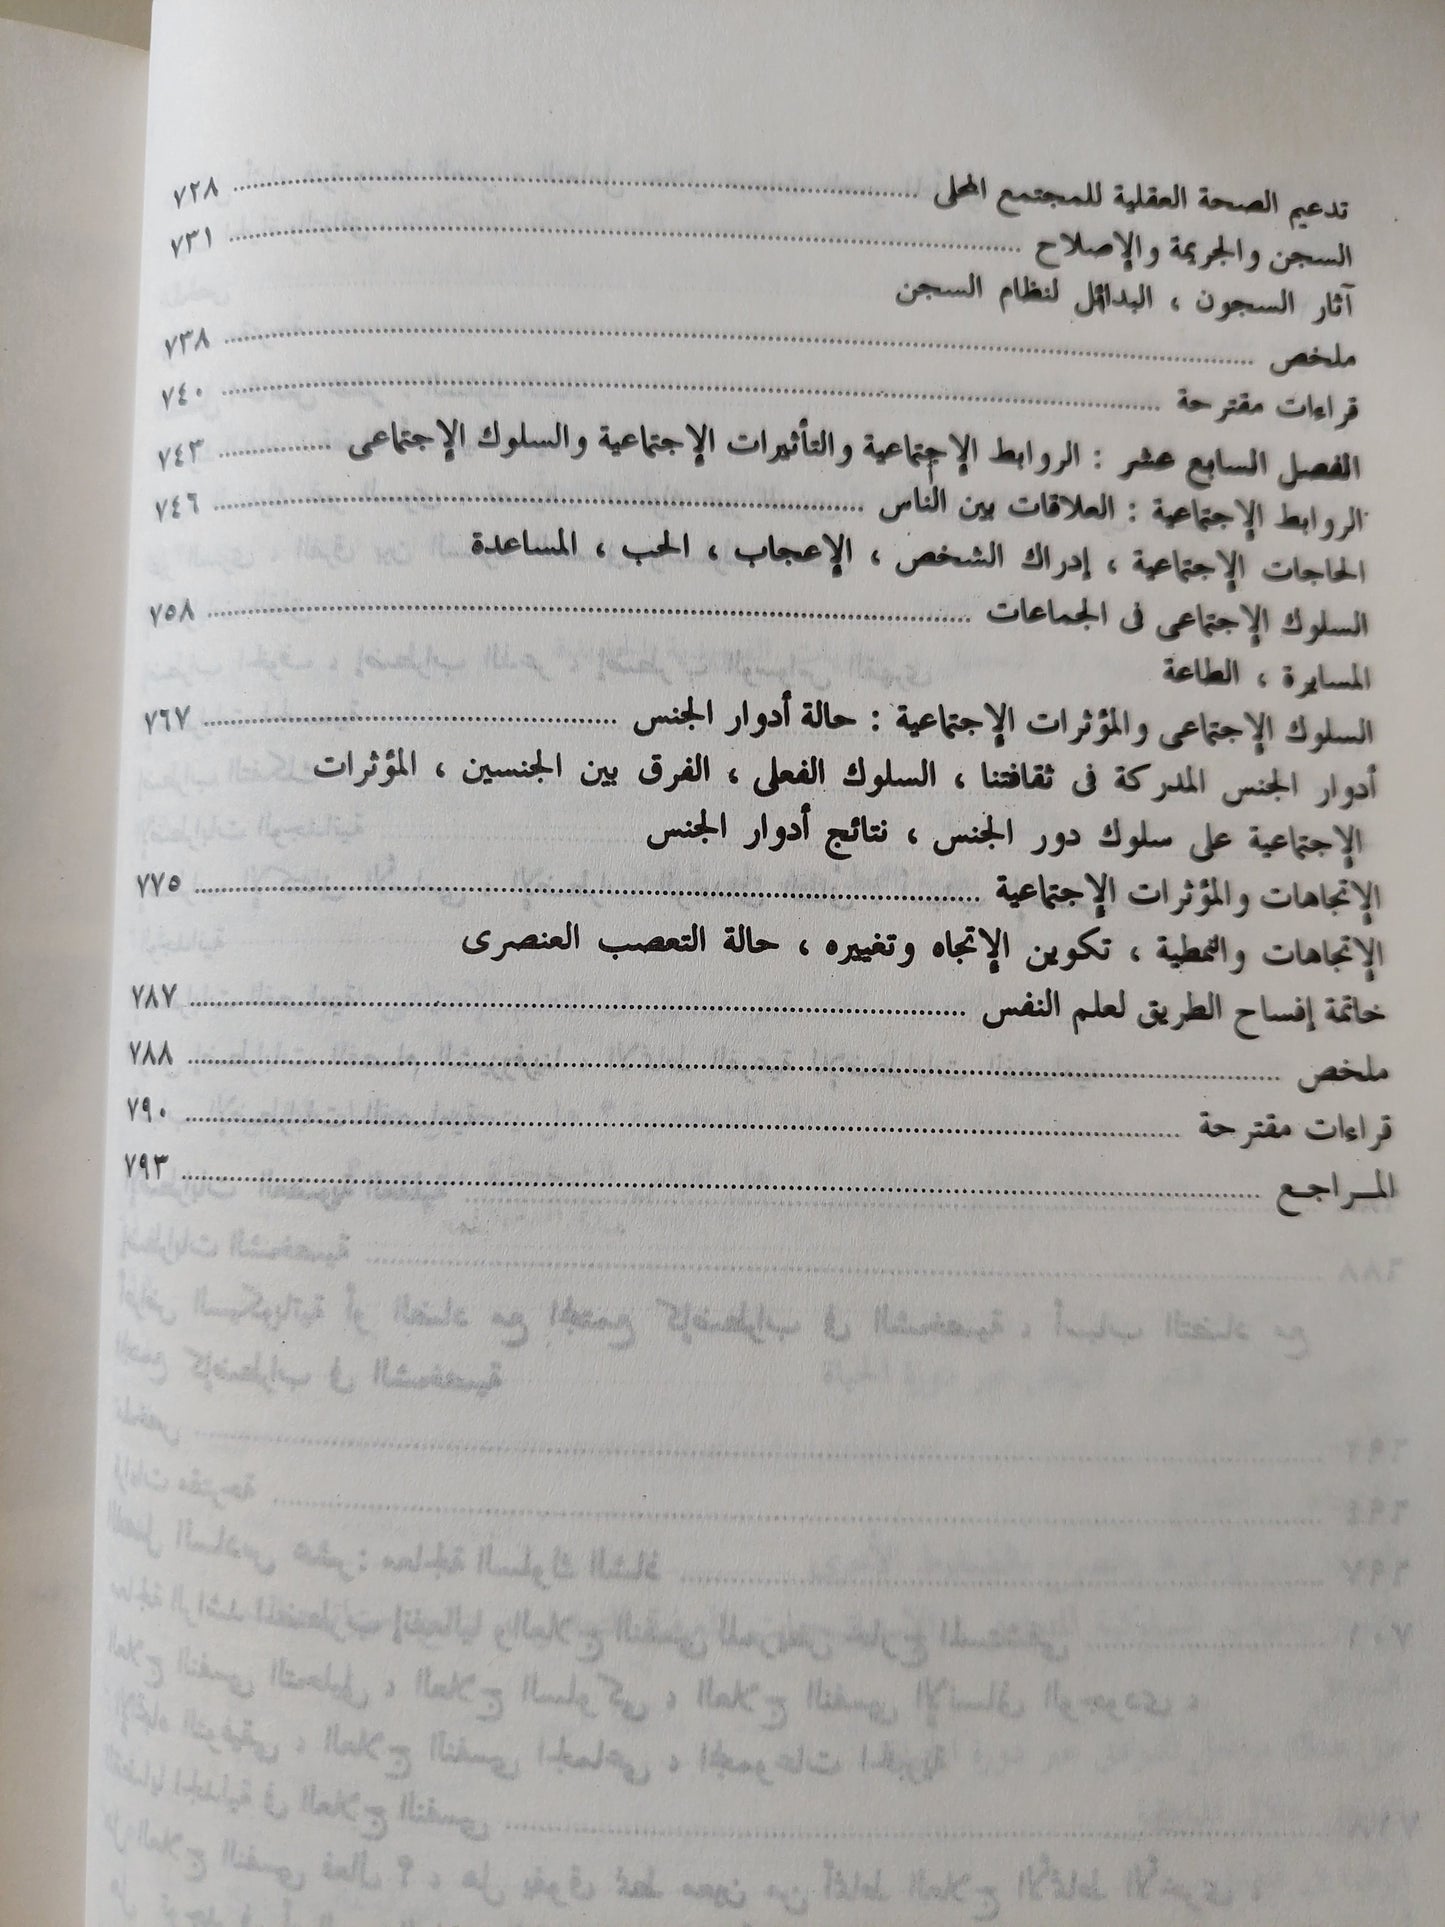 تدعيم الصحة العقلية للمجتمع المحلى ........ ٧٢٨
السجن والجريمة والإصلاح ........ ٧٣١
آثار السجون ، البدائل لنظام السجن
ملخص ........ ٧٣٨
قراءات مقترحة ........ ٧٤٠
الفصل السابع عشر : الروابط الإجتماعية والتأثيرات الإجتماعية والسلوك الإجتماعى ........ ٧٤٣
الروابط الإجتماعية : العلاقات بين الناس ........ ٧٤٦
الحاجات الإجتماعية ، إدراك الشخص ، الإعجاب ، الحب ، المساعدة
السلوك الإجتماعى فى الجماعات ........ ٧٥٨
المسايرة ، الطاعة
السلوك الإجتماعى والمؤثرات الإجتماعية : حالة أدوار الجنس ........ ٧٦٧
أدوار الجنس المدركة فى ثقافتنا ، السلوك الفعلى ، الفرق بين الجنسين ، المؤثرات
الإجتماعية على سلوك دور الجنس ، نتائج أدوار الجنس
الإتجاهات والمؤثرات الإجتماعية ........ ٧٧٥
الإتجاهات والنمطية ، تكوين الإتجاه وتغييره ، حالة التعصب العنصرى
خاتمة إفساح الطريق لعلم النفس ........ ٧٨٧
ملخص ........ ٧٨٨
قراءات مقترحة ........ ٧٩٠
المــراجــع ........ ٧٩٣